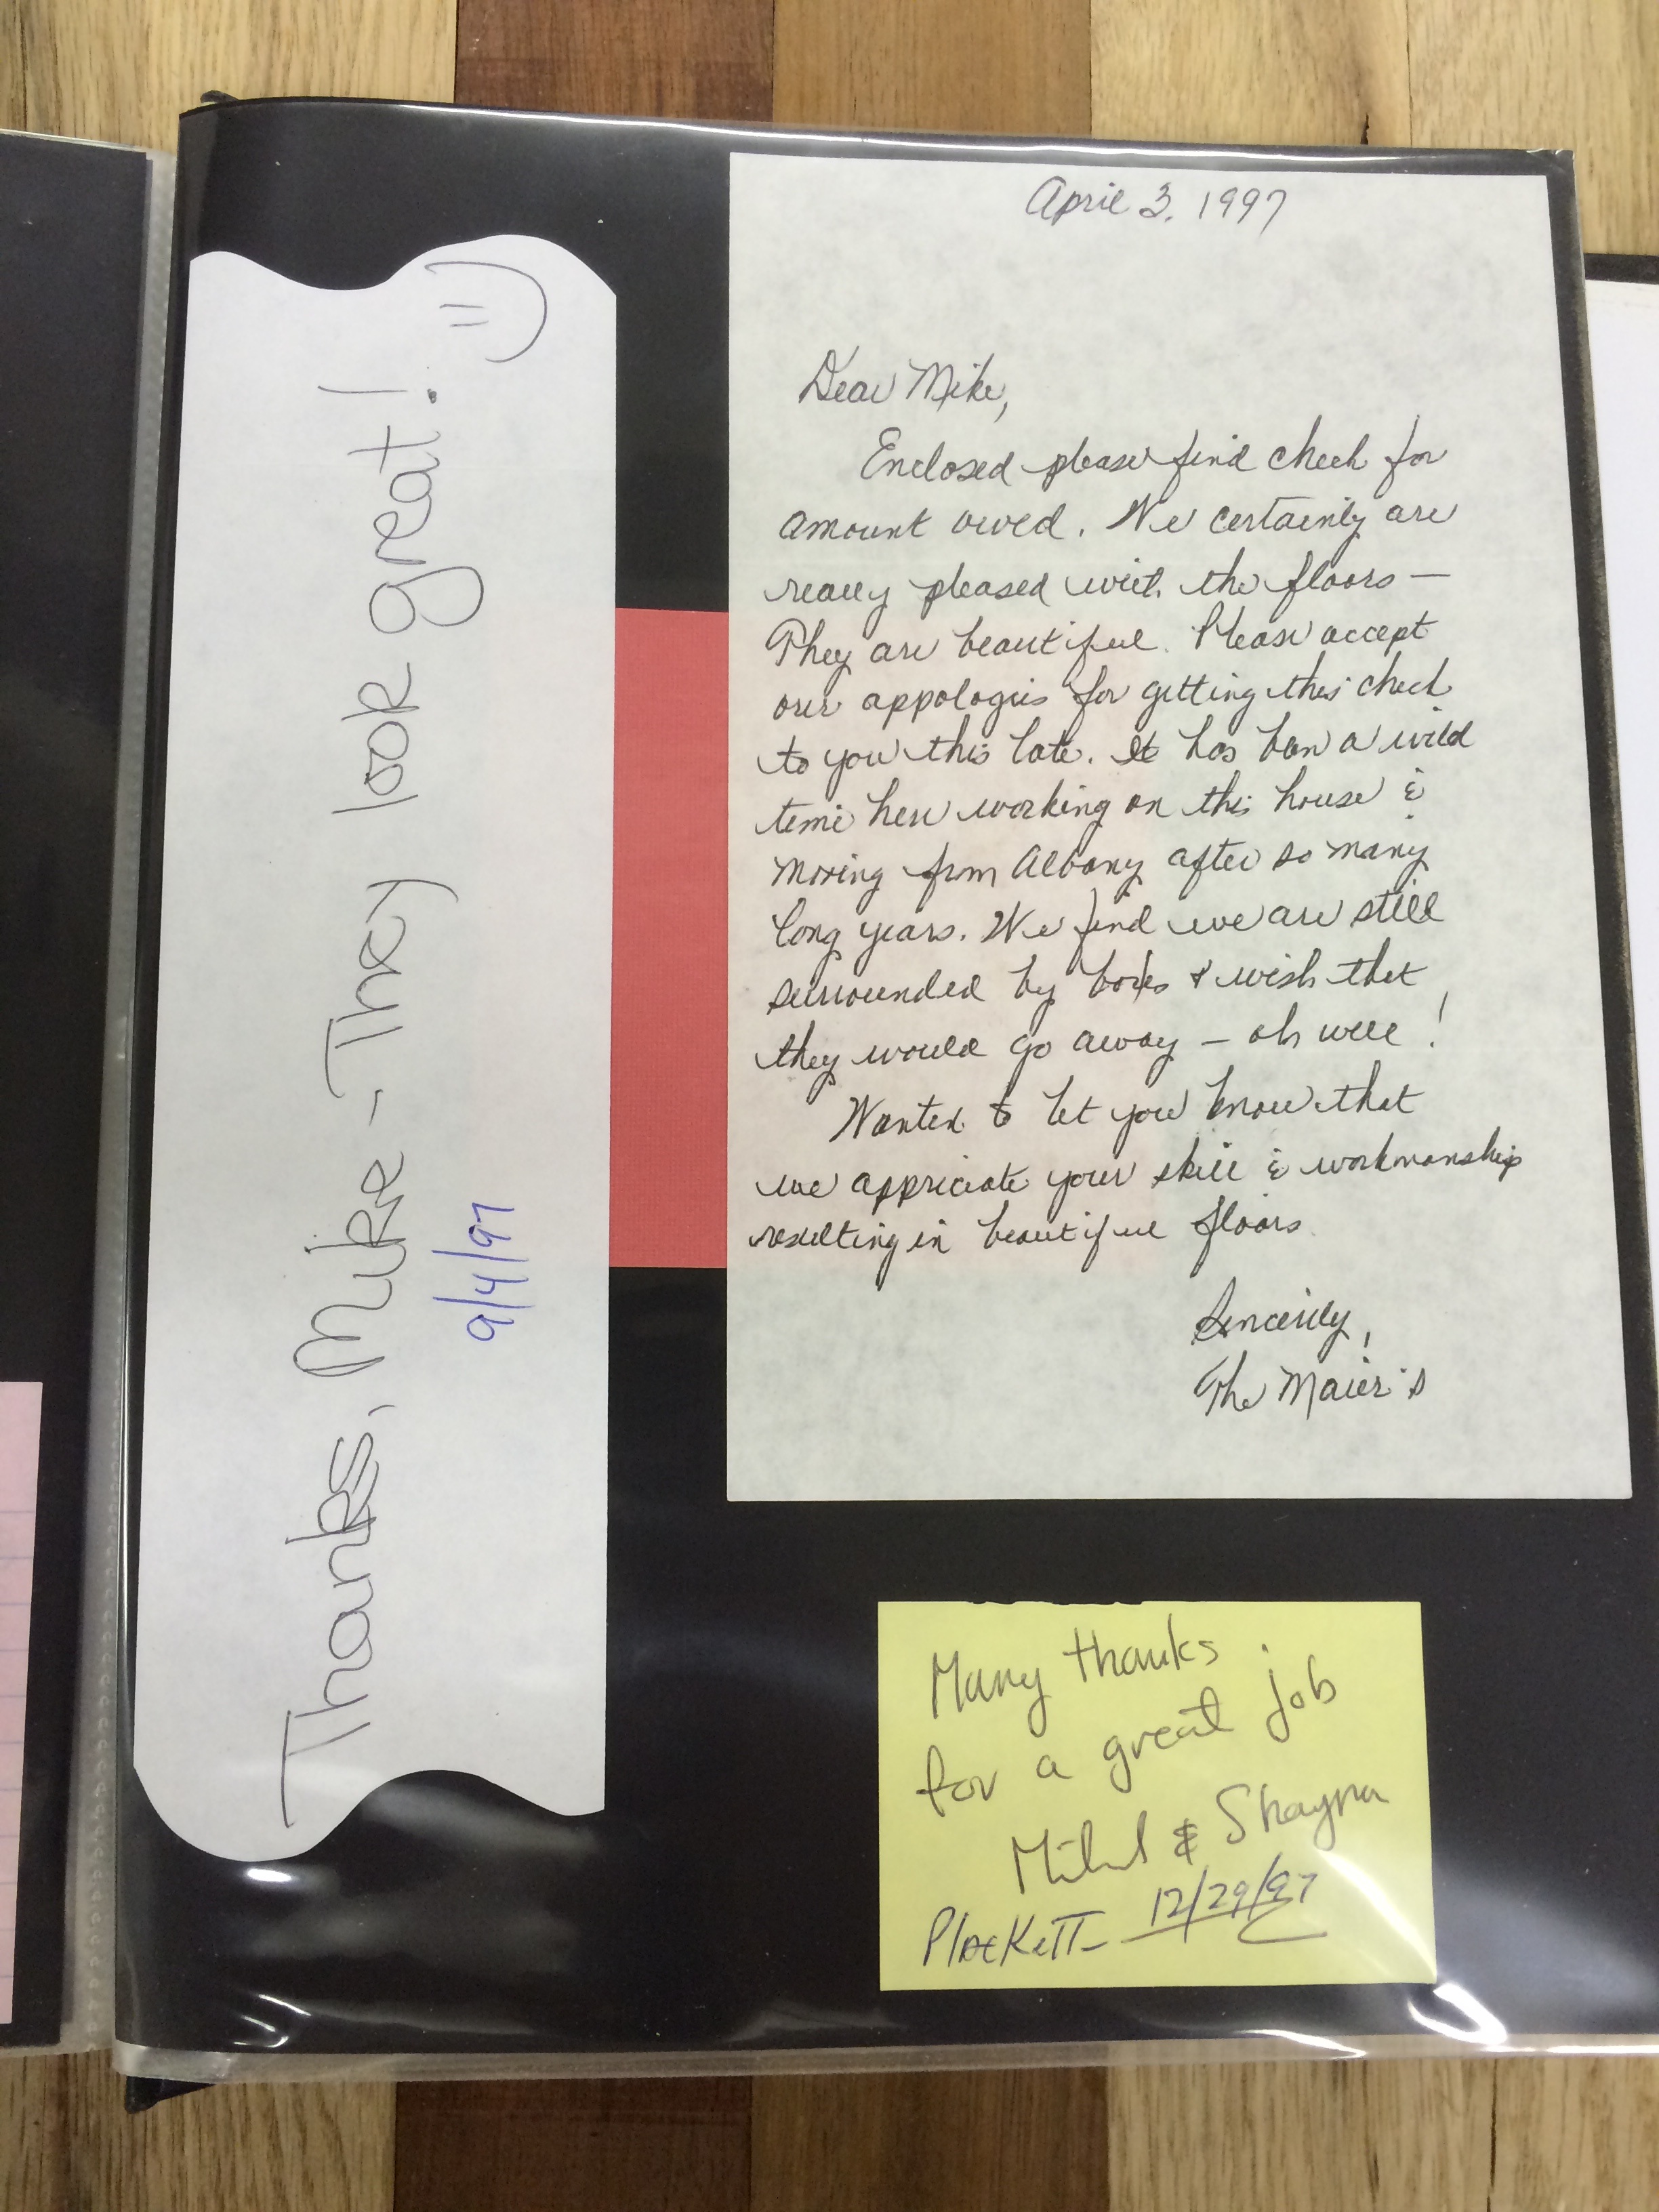 Thanks, Mike - They look great! =)
9/4/97
April 3, 1997
Dear Mike,
Enclosed please find check for
amount owed. We certainly are
really pleased with the floors —
They are beautiful. Please accept
our appologies for getting this check
to you this late. It has been a wild
time here working on this house &
moving from Albany after so many
long years. We find we are still
surrounded by boxes & wish that
they would go away – oh well!
Wanted to let you know that
we appriciate your skill & workmanship
resulting in beautiful floors.
Sincerely,
The Maier's
Many thanks
for a great job
& Shayna
12/29/97